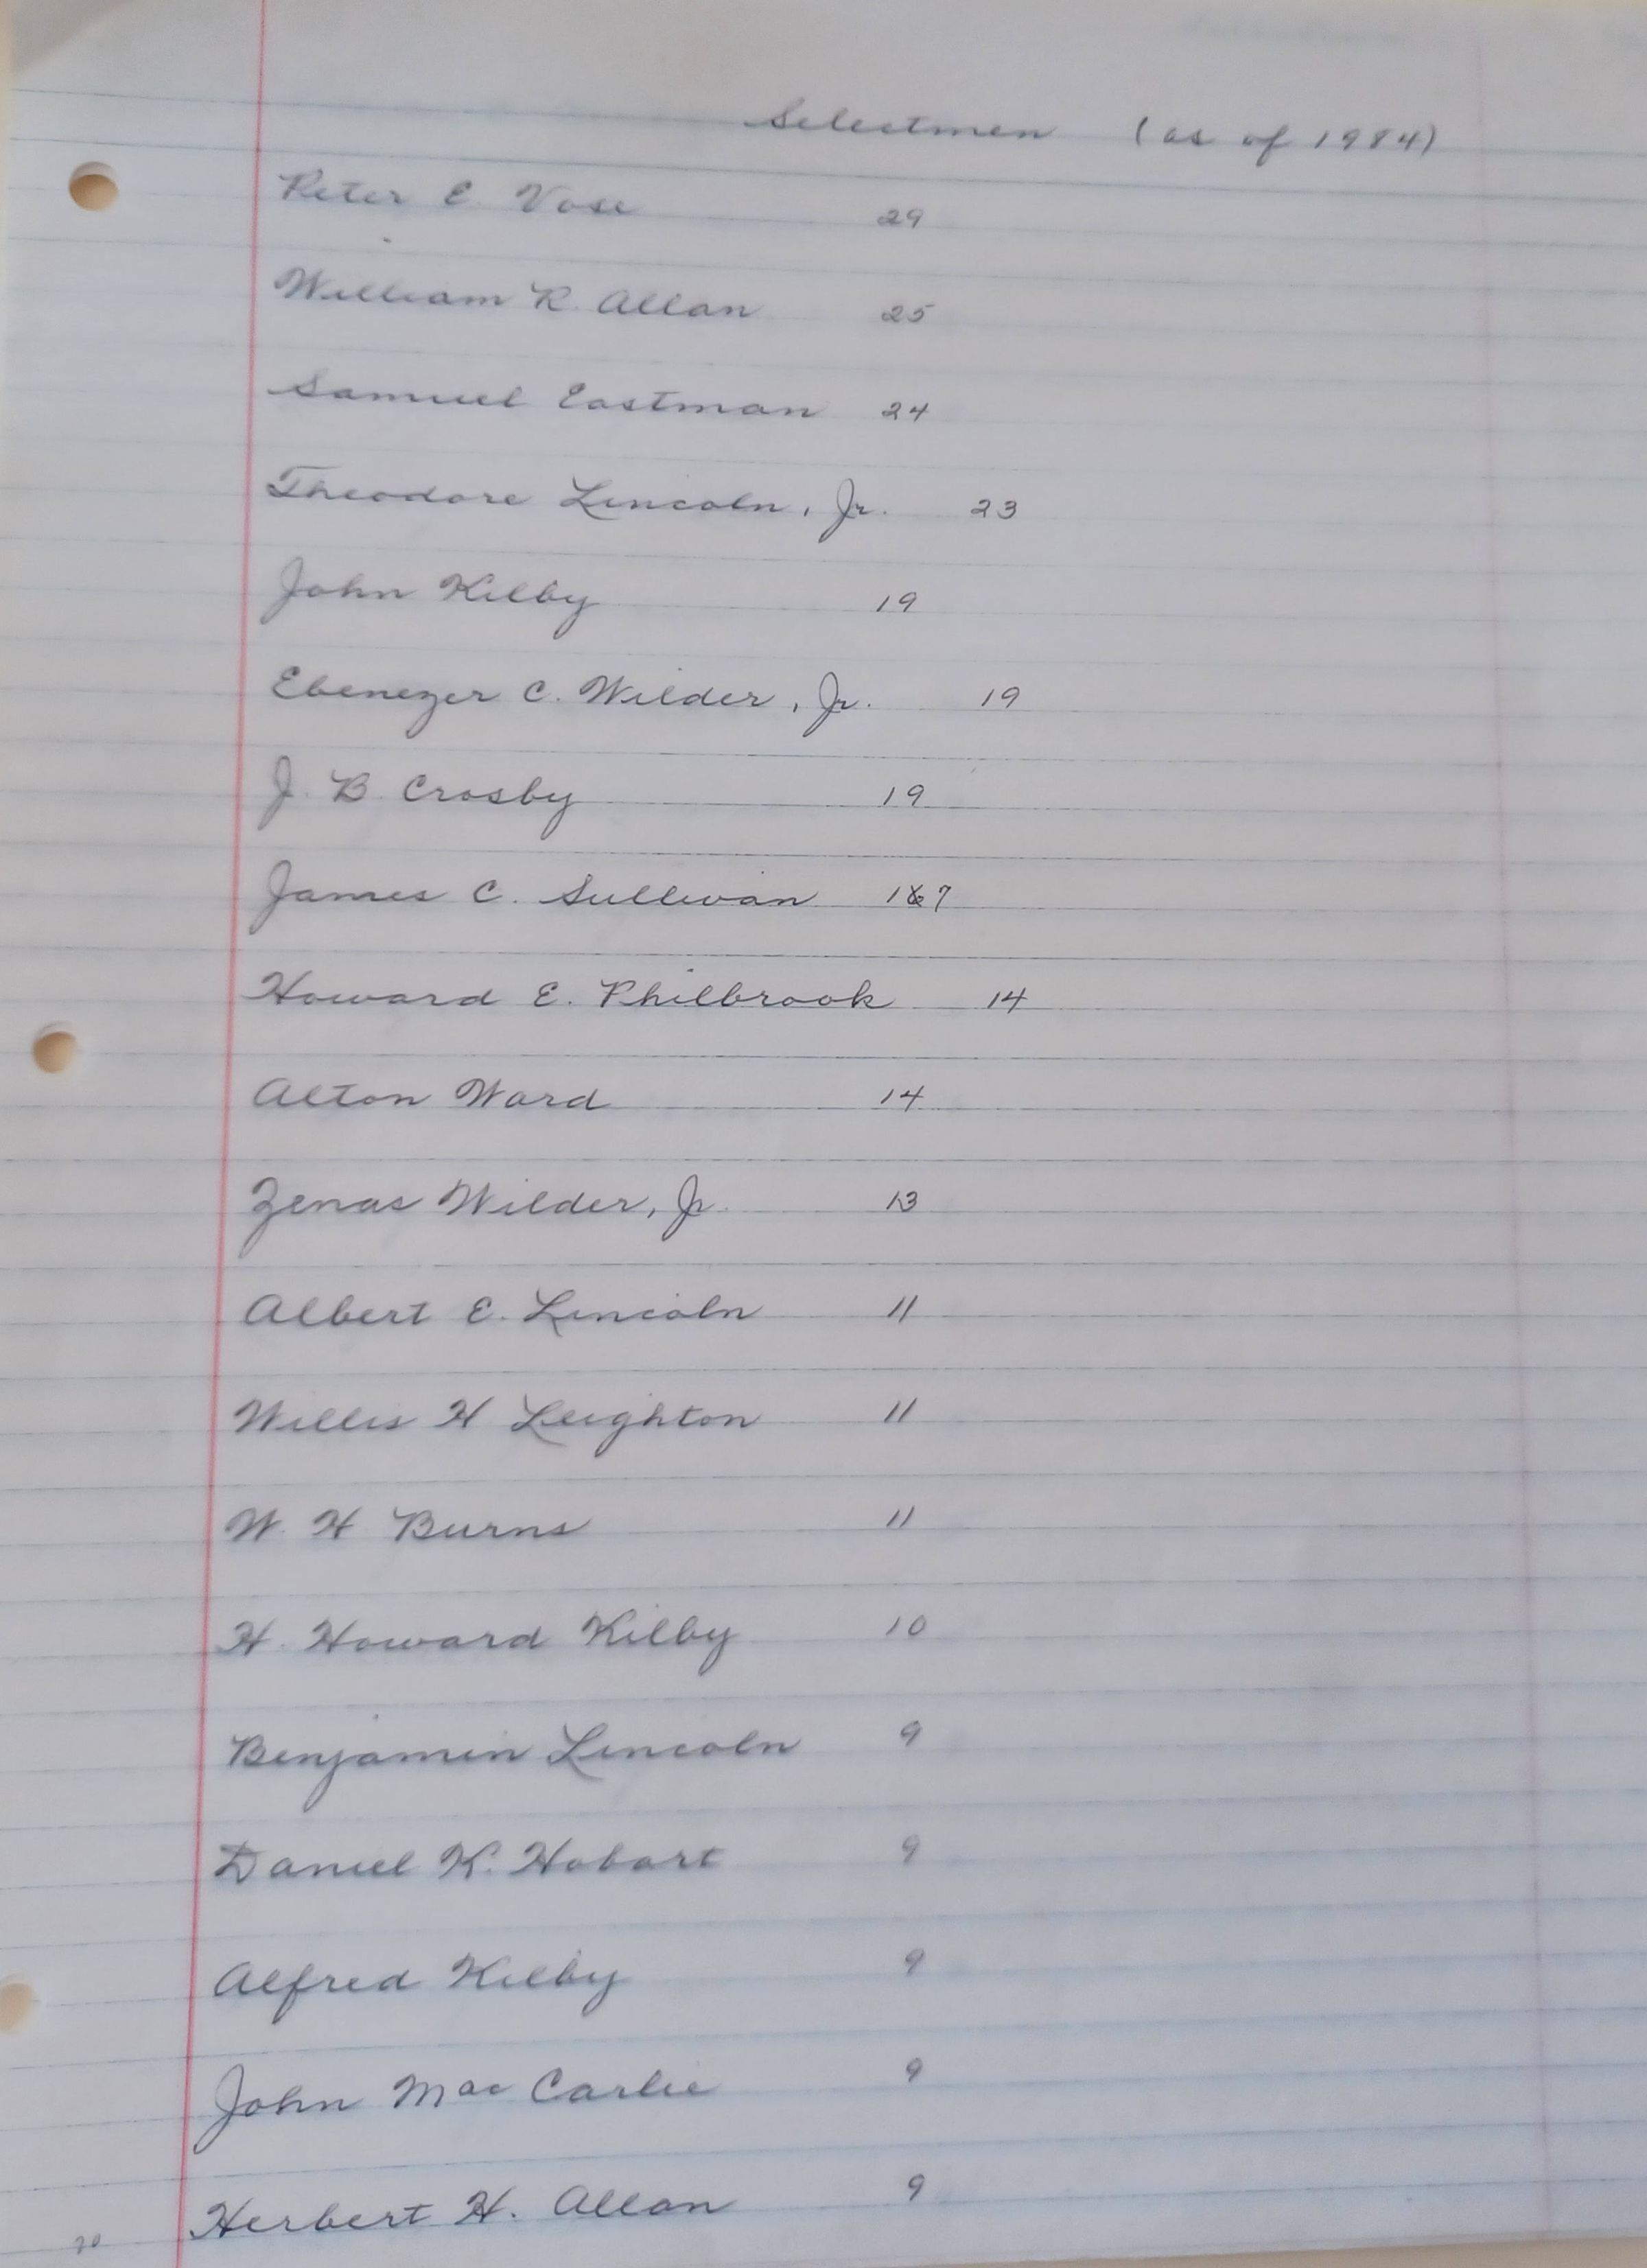 Selectmen (as of 1984)
Peter E. Vose 29
William R. Allan 25
Samuel Eastman 24
Theodore Lincoln, Jr. 23
John Kilby 19
Ebenezer C. Wilder, Jr. 19
J. B. Crosby 19
James C. Sullivan 17
Howard E. Philbrook 14
Alton Ward 14
Zenas Wilder, Jr. 13
Albert E. Lincoln 11
Willis H Leighton 11
W. H Burns 11
H. Howard Kilby 10
Benjamin Lincoln 9
Daniel K. Hobart 9
Alfred Kilby 9
John Mac Carlie 9
Herbert H. Allan 9
20